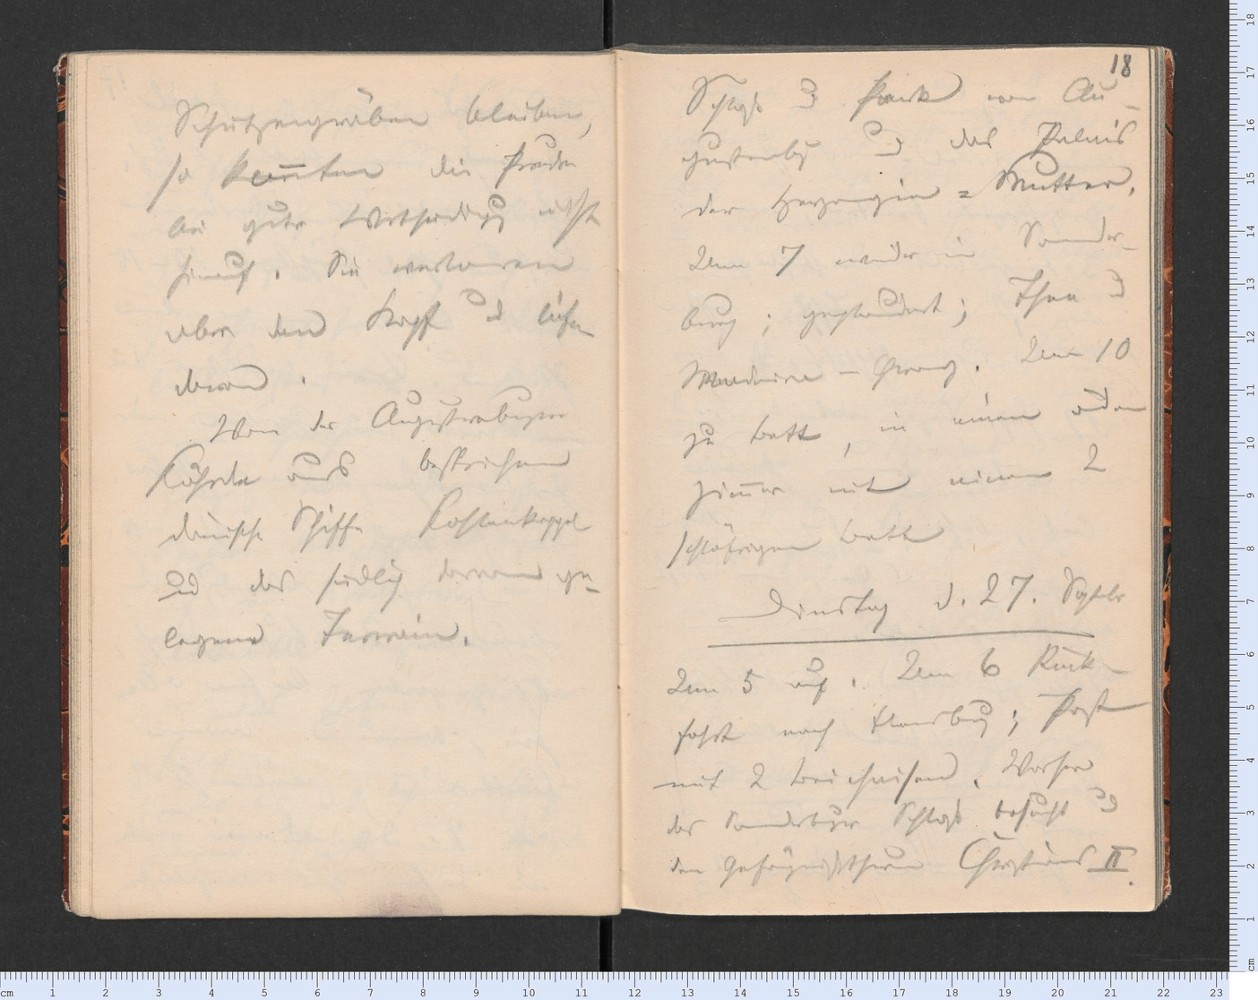 Schützengräben bleiben,
so konnten die Preußen
bei guter Vertheidigg nicht
hinauf. Sie verloren
aber den Kopf u liefen
davon.
Von der Augustenburger
Föhrde aus bestrichen
dänische Schiffe
und das südlich davon ge-
legene Terrain.
18
Schloß u Park von Au-
gustenbg u das Palais
der Herzogin = Mutter.
Um 7 wieder in Sonder-
burg; geplaudert; Thee u
Madeira – Grog. Um 10
zu Bett, in einem
Zimmer mit einem 2
schläfrigen Bett
Dinstag d. 27. Septbr
Um 5 auf. Um 6 Rück-
fahrt nach Flensburg; Post
mit 2 Beichaisen. Vorher
das Sonderburger Schloß besucht u
den Gefängnißthurm Christians II.